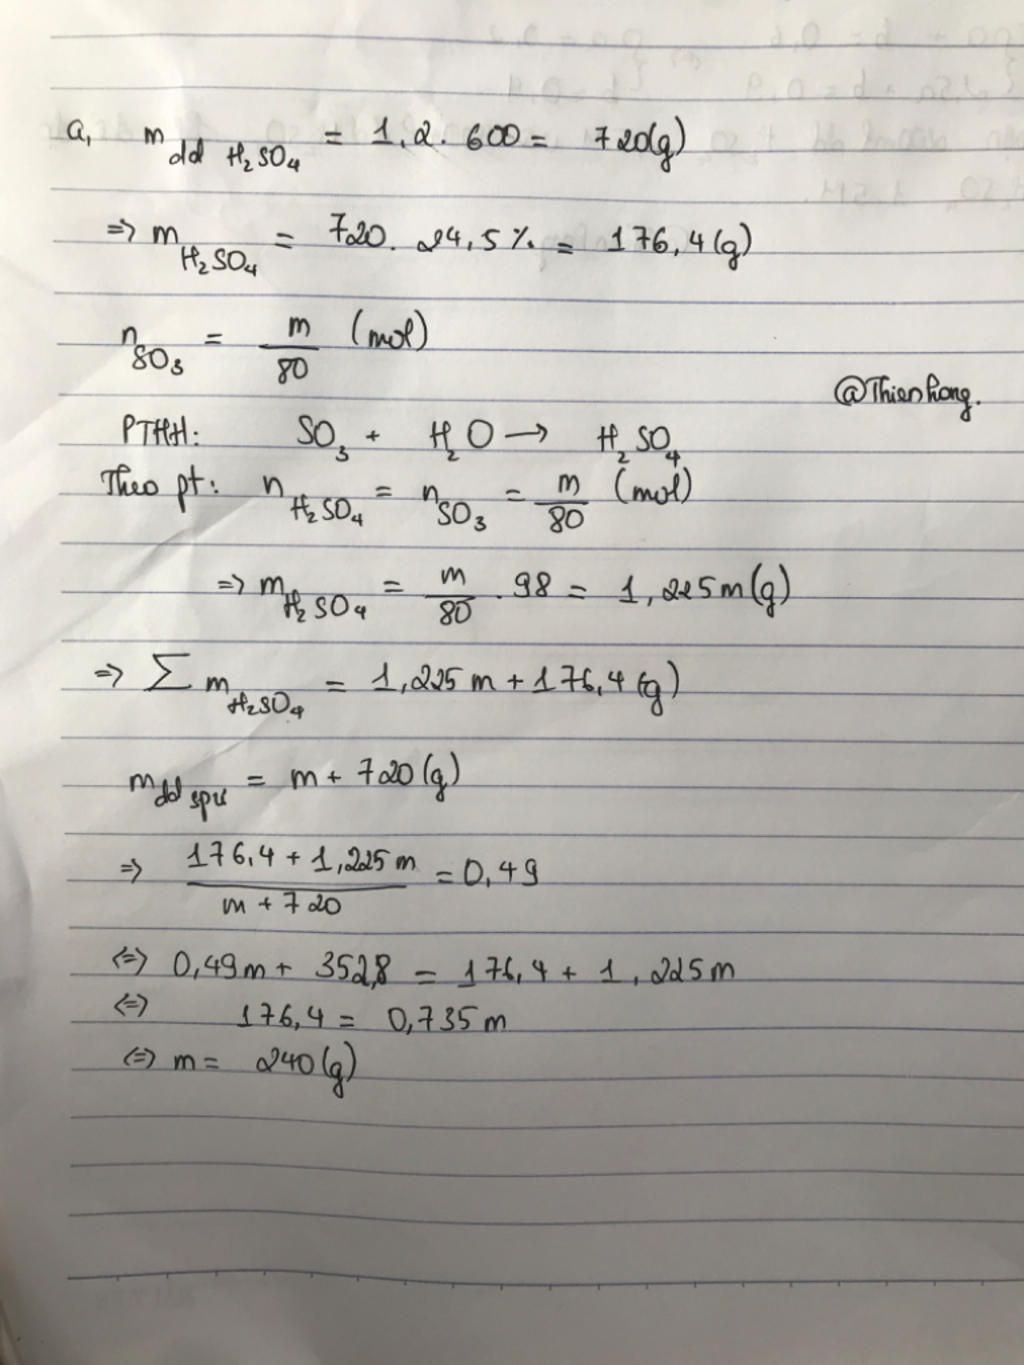 a, m dd H₂SO₄ = 1,2. 600 = 720(g)
=> m H₂SO₄ = 720. 24,5% = 176,4 (g)
n SO₃ = m/80 (mol)
@Thienhong.
PTHH: SO₃ + H₂O → H₂SO₄
Theo pt: n H₂SO₄ = n SO₃ = m/80 (mol)
=> m H₂SO₄ = m/80 . 98 = 1,225m(g)
=> Σ m H₂SO₄ = 1,225 m + 176,4 (g)
m dd spư = m + 720 (g)
=> (176,4 + 1,225 m)/(m + 720) = 0,49
<=> 0,49m + 352,8 = 176,4 + 1,225m
<=> 176,4 = 0,735 m
<=> m = 240 (g)